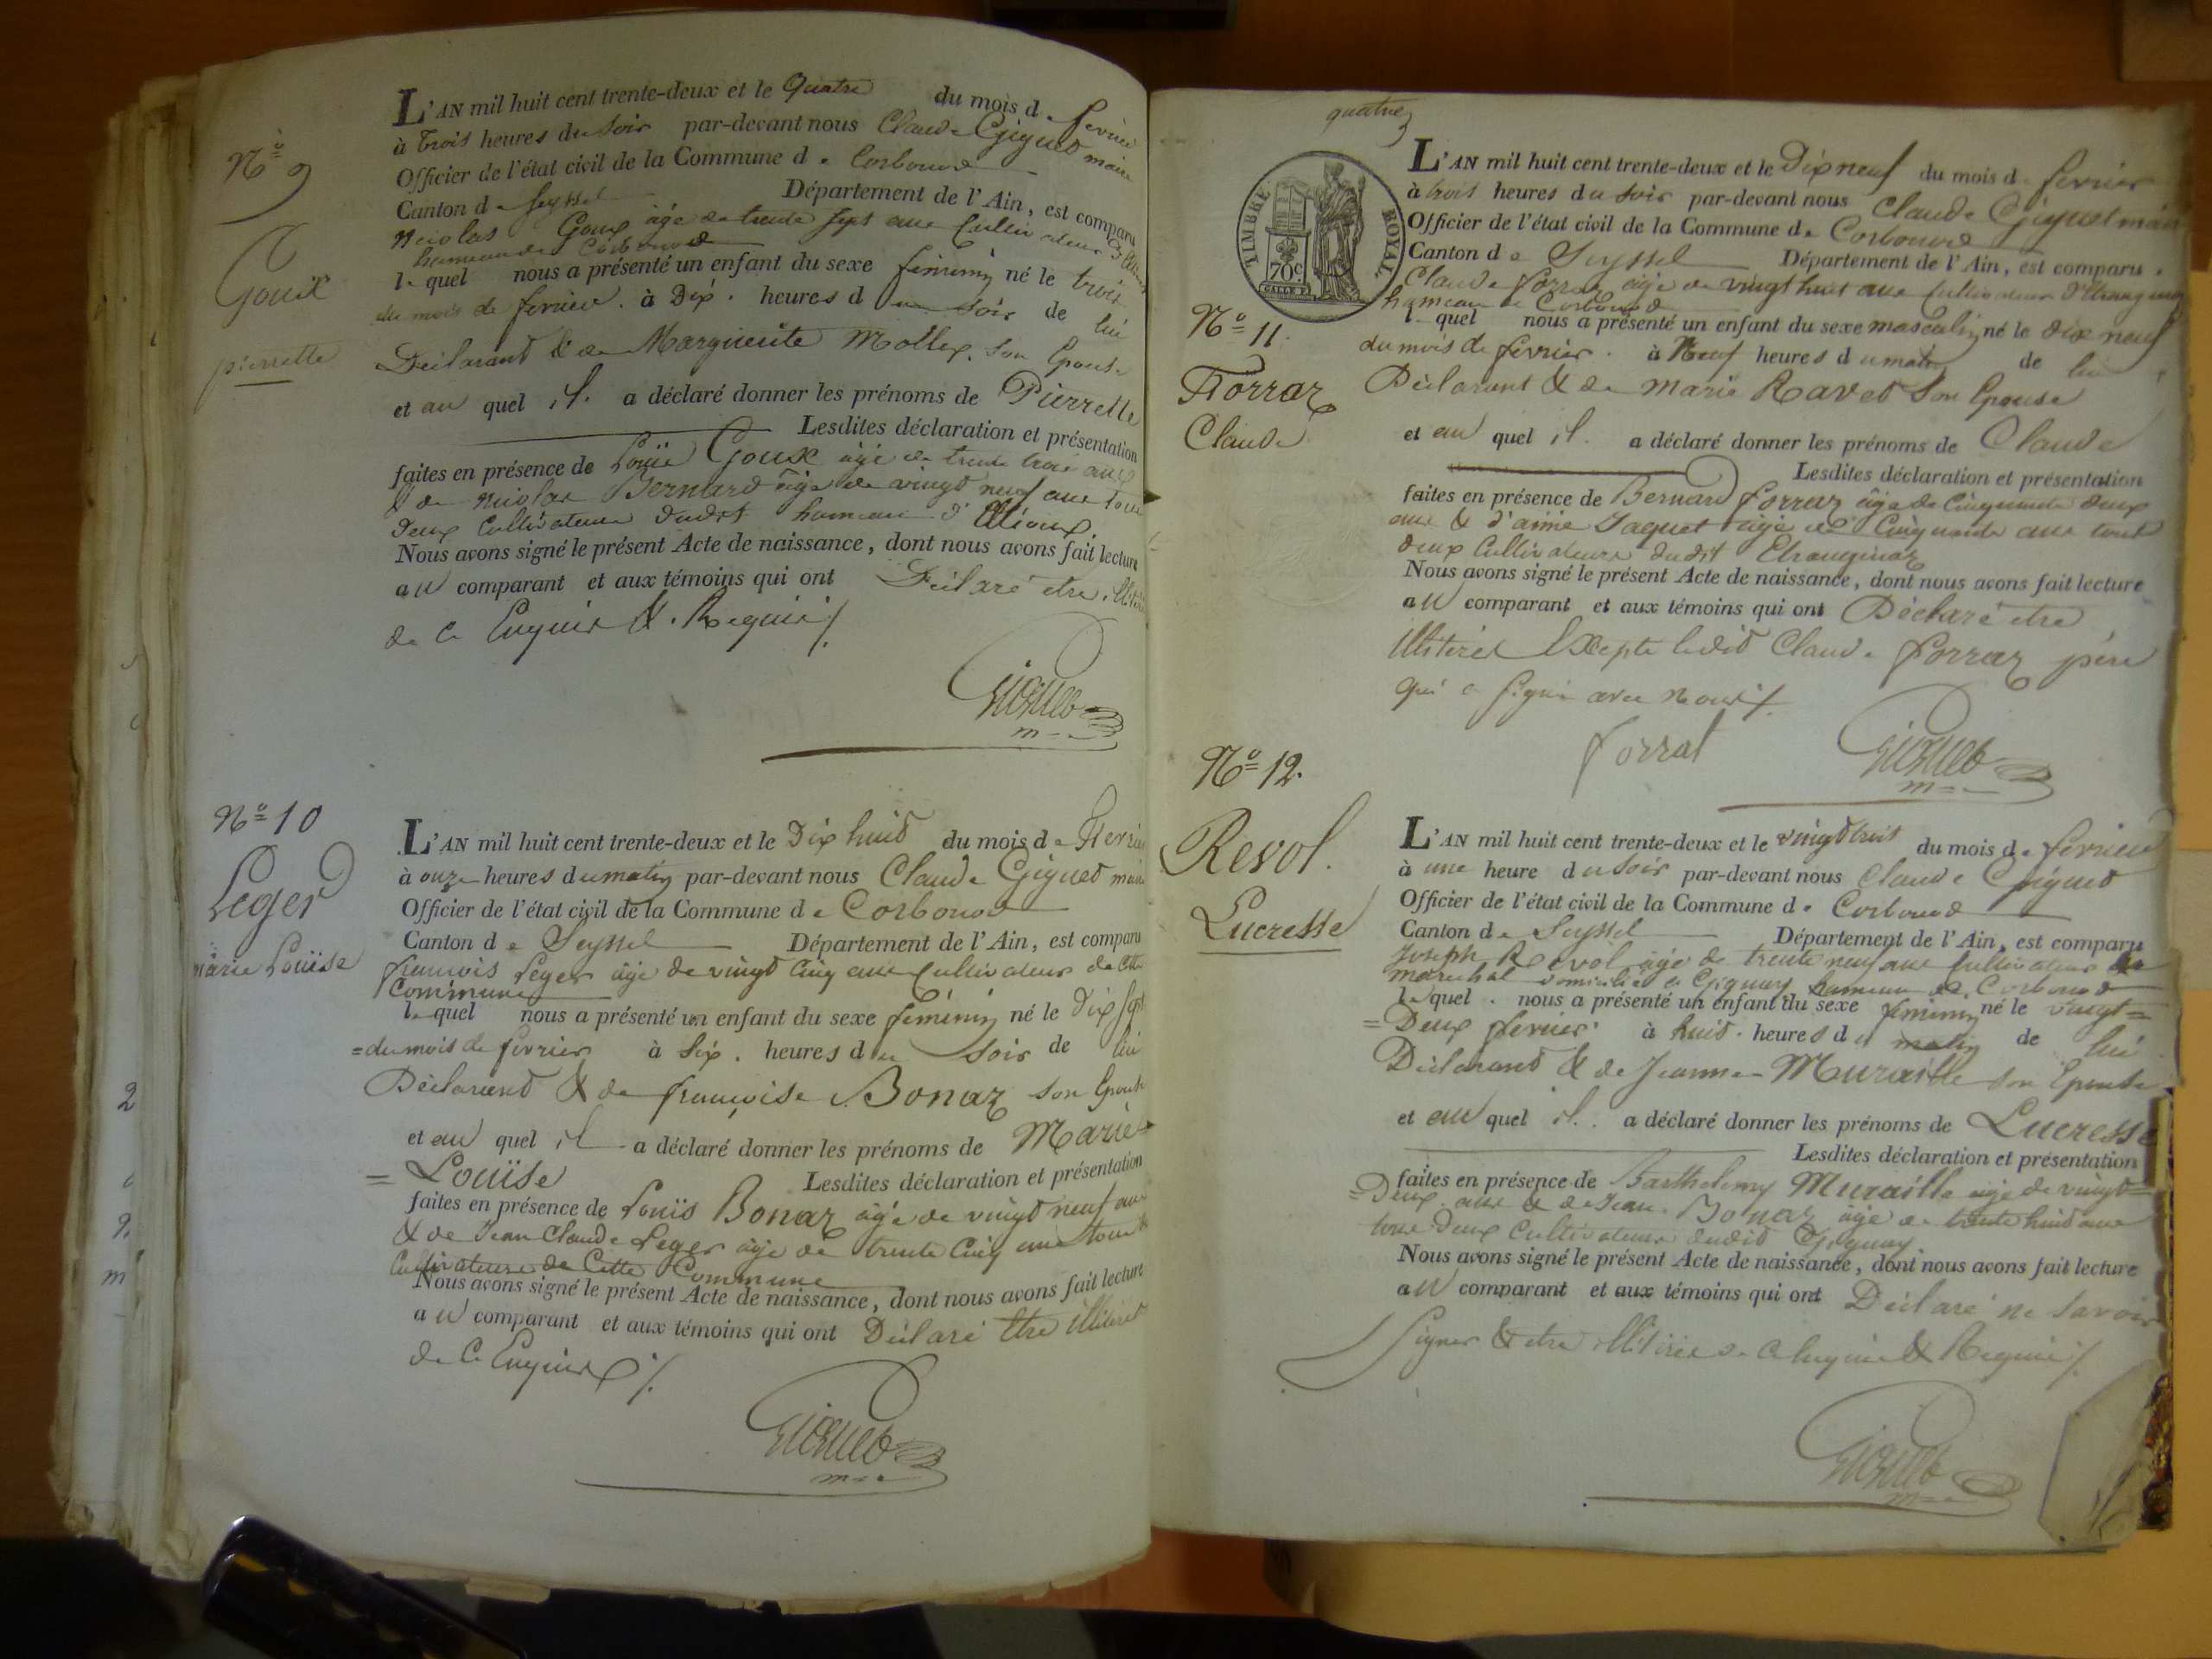 N.º 9
Goux
pierrette
L'AN mil huit cent trente-deux et le Quatre du mois de fevrier
à trois heures du soir par-devant nous Claude Gignet maire
Officier de l'état civil de la Commune de Corbonod
Canton de Seyssel Département de l'Ain, est comparu
Nicolas Goux âgé de trente sept ans Cultivateur
hameau de Corbonod
lequel nous a présenté un enfant du sexe féminin né le trois
du mois de fevrier. à Dix. heures du soir de lui
Déclarant & de Marguerite Mollex son Epouse
et au quel il. a déclaré donner les prénoms de Pierrette
Lesdites déclaration et présentation
faites en présence de Louis Goux âgé de trente trois ans
& de Nicolas Bernard âgé de vingt neuf ans tous
deux Cultivateurs dudit hameau d'
Nous avons signé le présent Acte de naissance, dont nous avons fait lecture
au comparant et aux témoins qui ont Déclaré etre illitérés
de ce Enquis & Requis /.
Gignet
m
N.º 10
Leger
Marie Louïse
L'AN mil huit cent trente-deux et le Dix huit du mois de Fevrier
à onze heures du matin par-devant nous Claude Gignet maire
Officier de l'état civil de la Commune de Corbonod
Canton de Seyssel Département de l'Ain, est comparu
françois Leger âgé de vingt Cinq ans Cultivateur de Cette
Commune
lequel nous a présenté un enfant du sexe féminin né le Dix sept
= du mois de fevrier à Six. heures du soir de lui
Déclarant & de françoise Bonaz son Epouse
et au quel il a déclaré donner les prénoms de Marie =
= Louïse Lesdites déclaration et présentation
faites en présence de Louis Bonaz âgé de vingt neuf ans
& de Jean Claude Leger âgé de trente Cinq ans tous
Cultivateurs de Cette Commune
Nous avons signé le présent Acte de naissance, dont nous avons fait lecture
au comparant et aux témoins qui ont Déclaré Etre illiterés
de Ce Enquis /.
Gignet
m
quatre
TIMBRE ROYAL
70c
N.º 11.
Forraz
Claude
L'AN mil huit cent trente-deux et le Dix neuf du mois de fevrier
à trois heures du soir par-devant nous Claude Gignet maire
Officier de l'état civil de la Commune de Corbonod
Canton de Seyssel Département de l'Ain, est comparu.
Claude forraz âgé de vingt huit ans Cultivateur d'Etranginaz
hameau de Corbonod
lequel nous a présenté un enfant du sexe masculin né le dix neuf
du mois de fevrier. à Neuf heures du matin de lui
Déclarant & de marie Ravet son Epouse
et au quel il. a déclaré donner les prénoms de Claude
Lesdites déclaration et présentation
faites en présence de Bernard forraz âgé de Cinquante deux
ans & d'aimé Jaquet âgé de Cinquante ans tous
deux Cultivateurs dudit Etranginaz
Nous avons signé le présent Acte de naissance, dont nous avons fait lecture
au comparant et aux témoins qui ont Déclaré etre
illitérés Excepté ledit Claude forraz père
qui a signé avec nous /.
forrat
Gignet
m
N.º 12.
Revol.
Lucresse
L'AN mil huit cent trente-deux et le vingt trois du mois de fevrier
à une heure du soir par-devant nous Claude Gignet
Officier de l'état civil de la Commune de Corbonod
Canton de Seyssel Département de l'Ain, est comparu
Joseph Revol âgé de trente neuf ans Cultivateur
marechal domicilié à Gignay hameau de Corbonod
lequel. nous a présenté un enfant du sexe féminin né le vingt =
= Deux fevrier. à huit. heures du matin de lui
Déclarant & de Jeanne Muraille son Epouse
et au quel il. a déclaré donner les prénoms de Lucresse
Lesdites déclaration et présentation
faites en présence de Barthelemy Muraille âgé de vingt =
= Deux ans & de Jean Bonaz âgé de trente huit ans
tous deux Cultivateurs dudit Gignay.
Nous avons signé le présent Acte de naissance, dont nous avons fait lecture
au comparant et aux témoins qui ont Déclaré ne savoir
signer & etre illitérés de Ce Enquis & Requis /.
Gignet
m